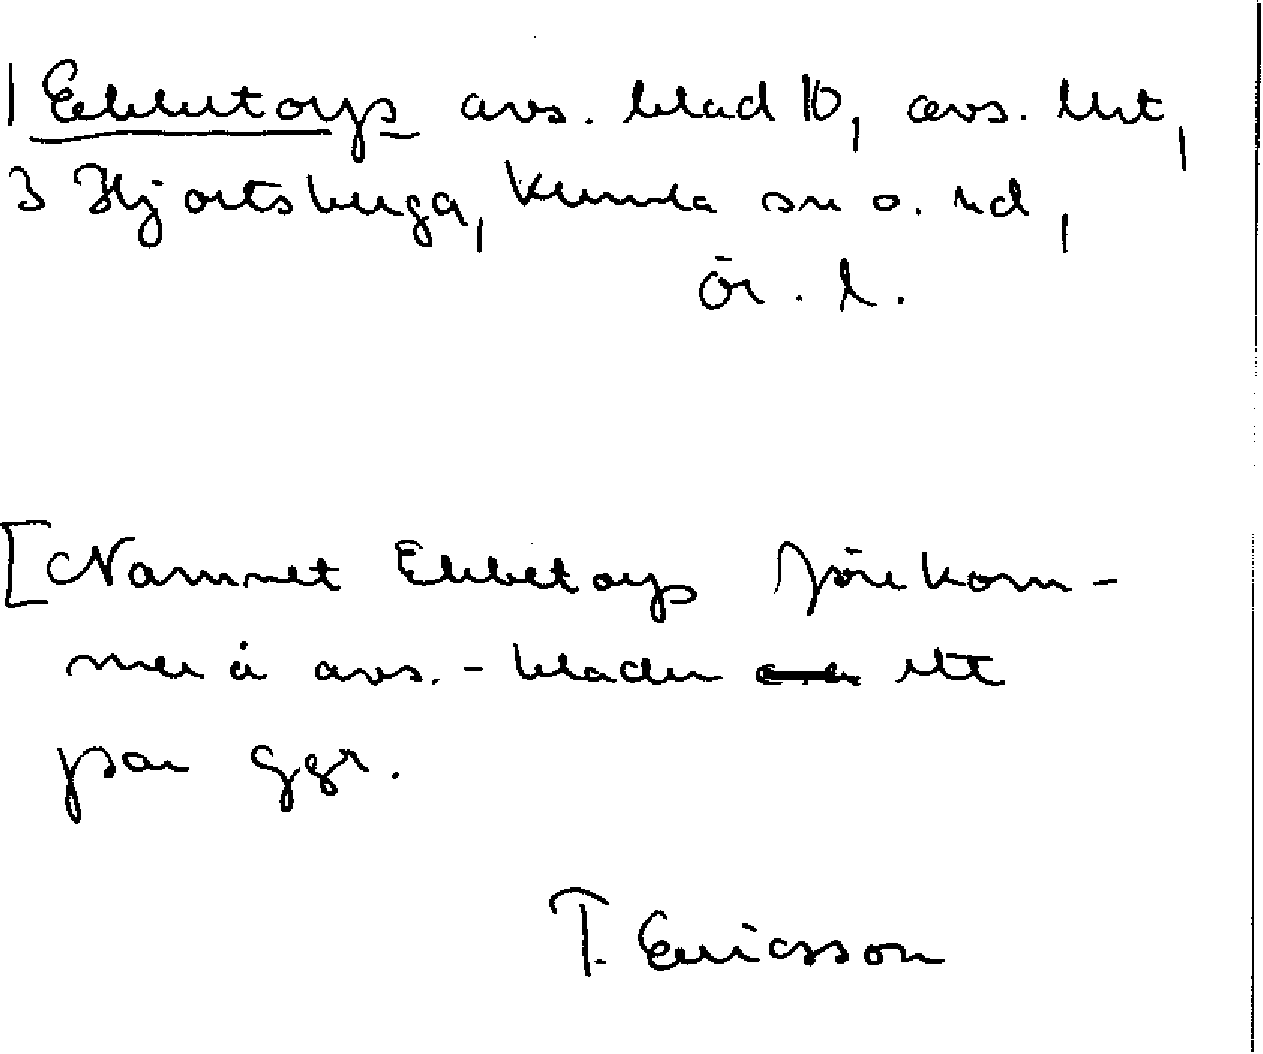 1 Ebbetorps avs. blad 10, avs. litt,
3 Hjortsberga, Kumla sn o. hd,
Ör. l.
[Namnet Ebbetorps förekom-
mer å avs.-bladen ett
par ggr.
T. Ericsson